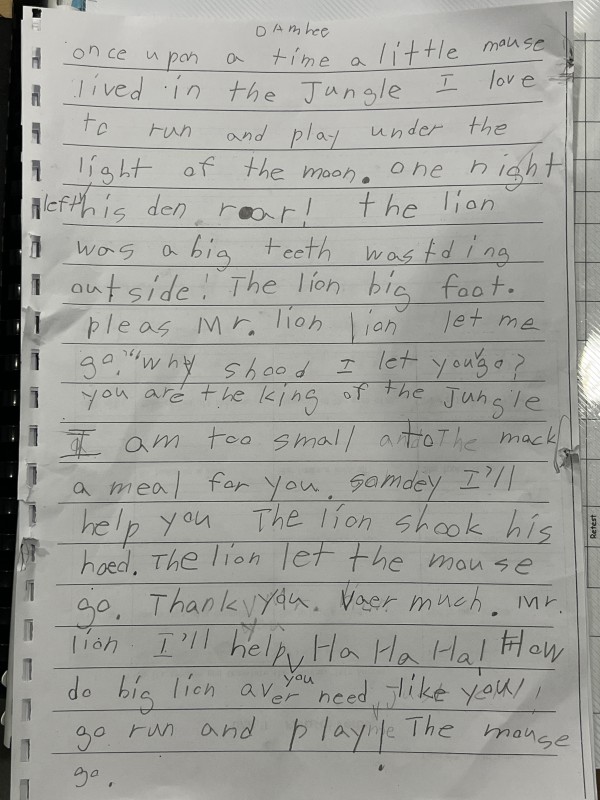 DAmhee
once upon a time a little mouse
lived in the Jungle I love
to run and play under the
light of the moon. one night
left his den roar! the lion
was a big teeth was tding
out side! The lion big foot.
pleas Mr. lion lion let me
go. "why shood I let you go?
you are the king of the Jungle
I am too small to The mack
a meal for you. somdey I'll
help you The lion shook his
hoed. The lion let the mouse
go. Thank you. Vaer much. Mr.
lion I'll help you Ha Ha Ha! How
do big lion aver need like you!
go run and play The mouse
go.
Retest